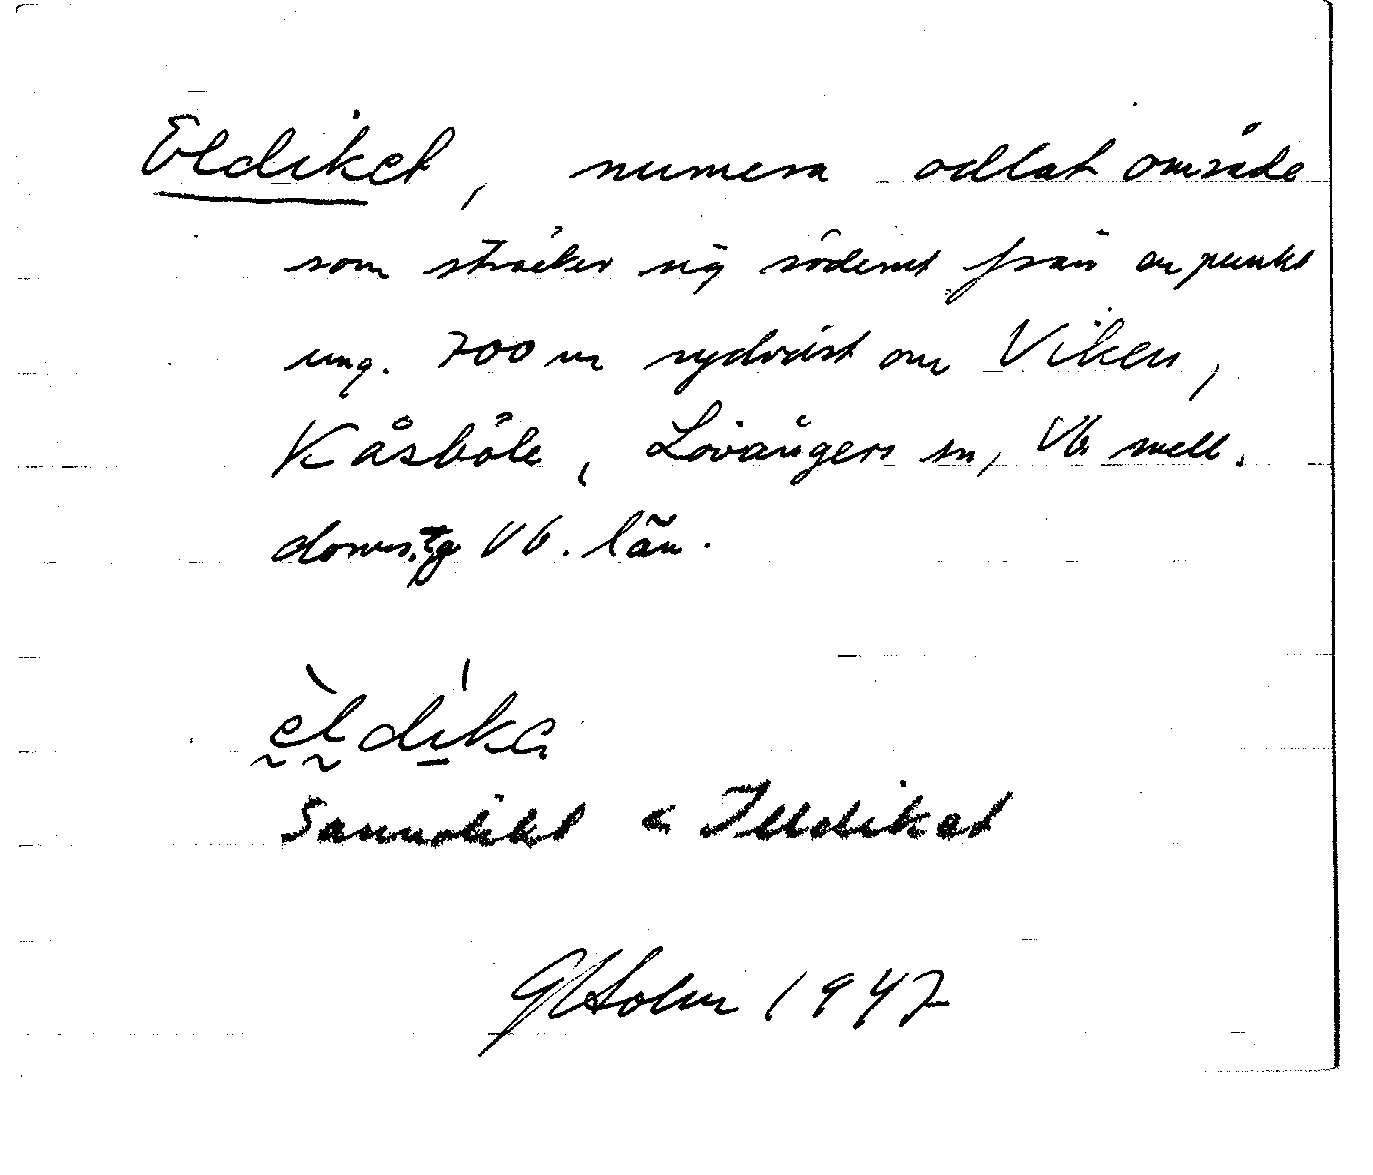 Eldiket, numera odlat område
som sträcker sig söderut från en punkt
ung. 700 m sydväst om Viken,
Kåsböle, Lövångers sn, Vb mell.
doms.tg Vb. län.
èldíka
Sannolikt < Illdiket
Holm 1947